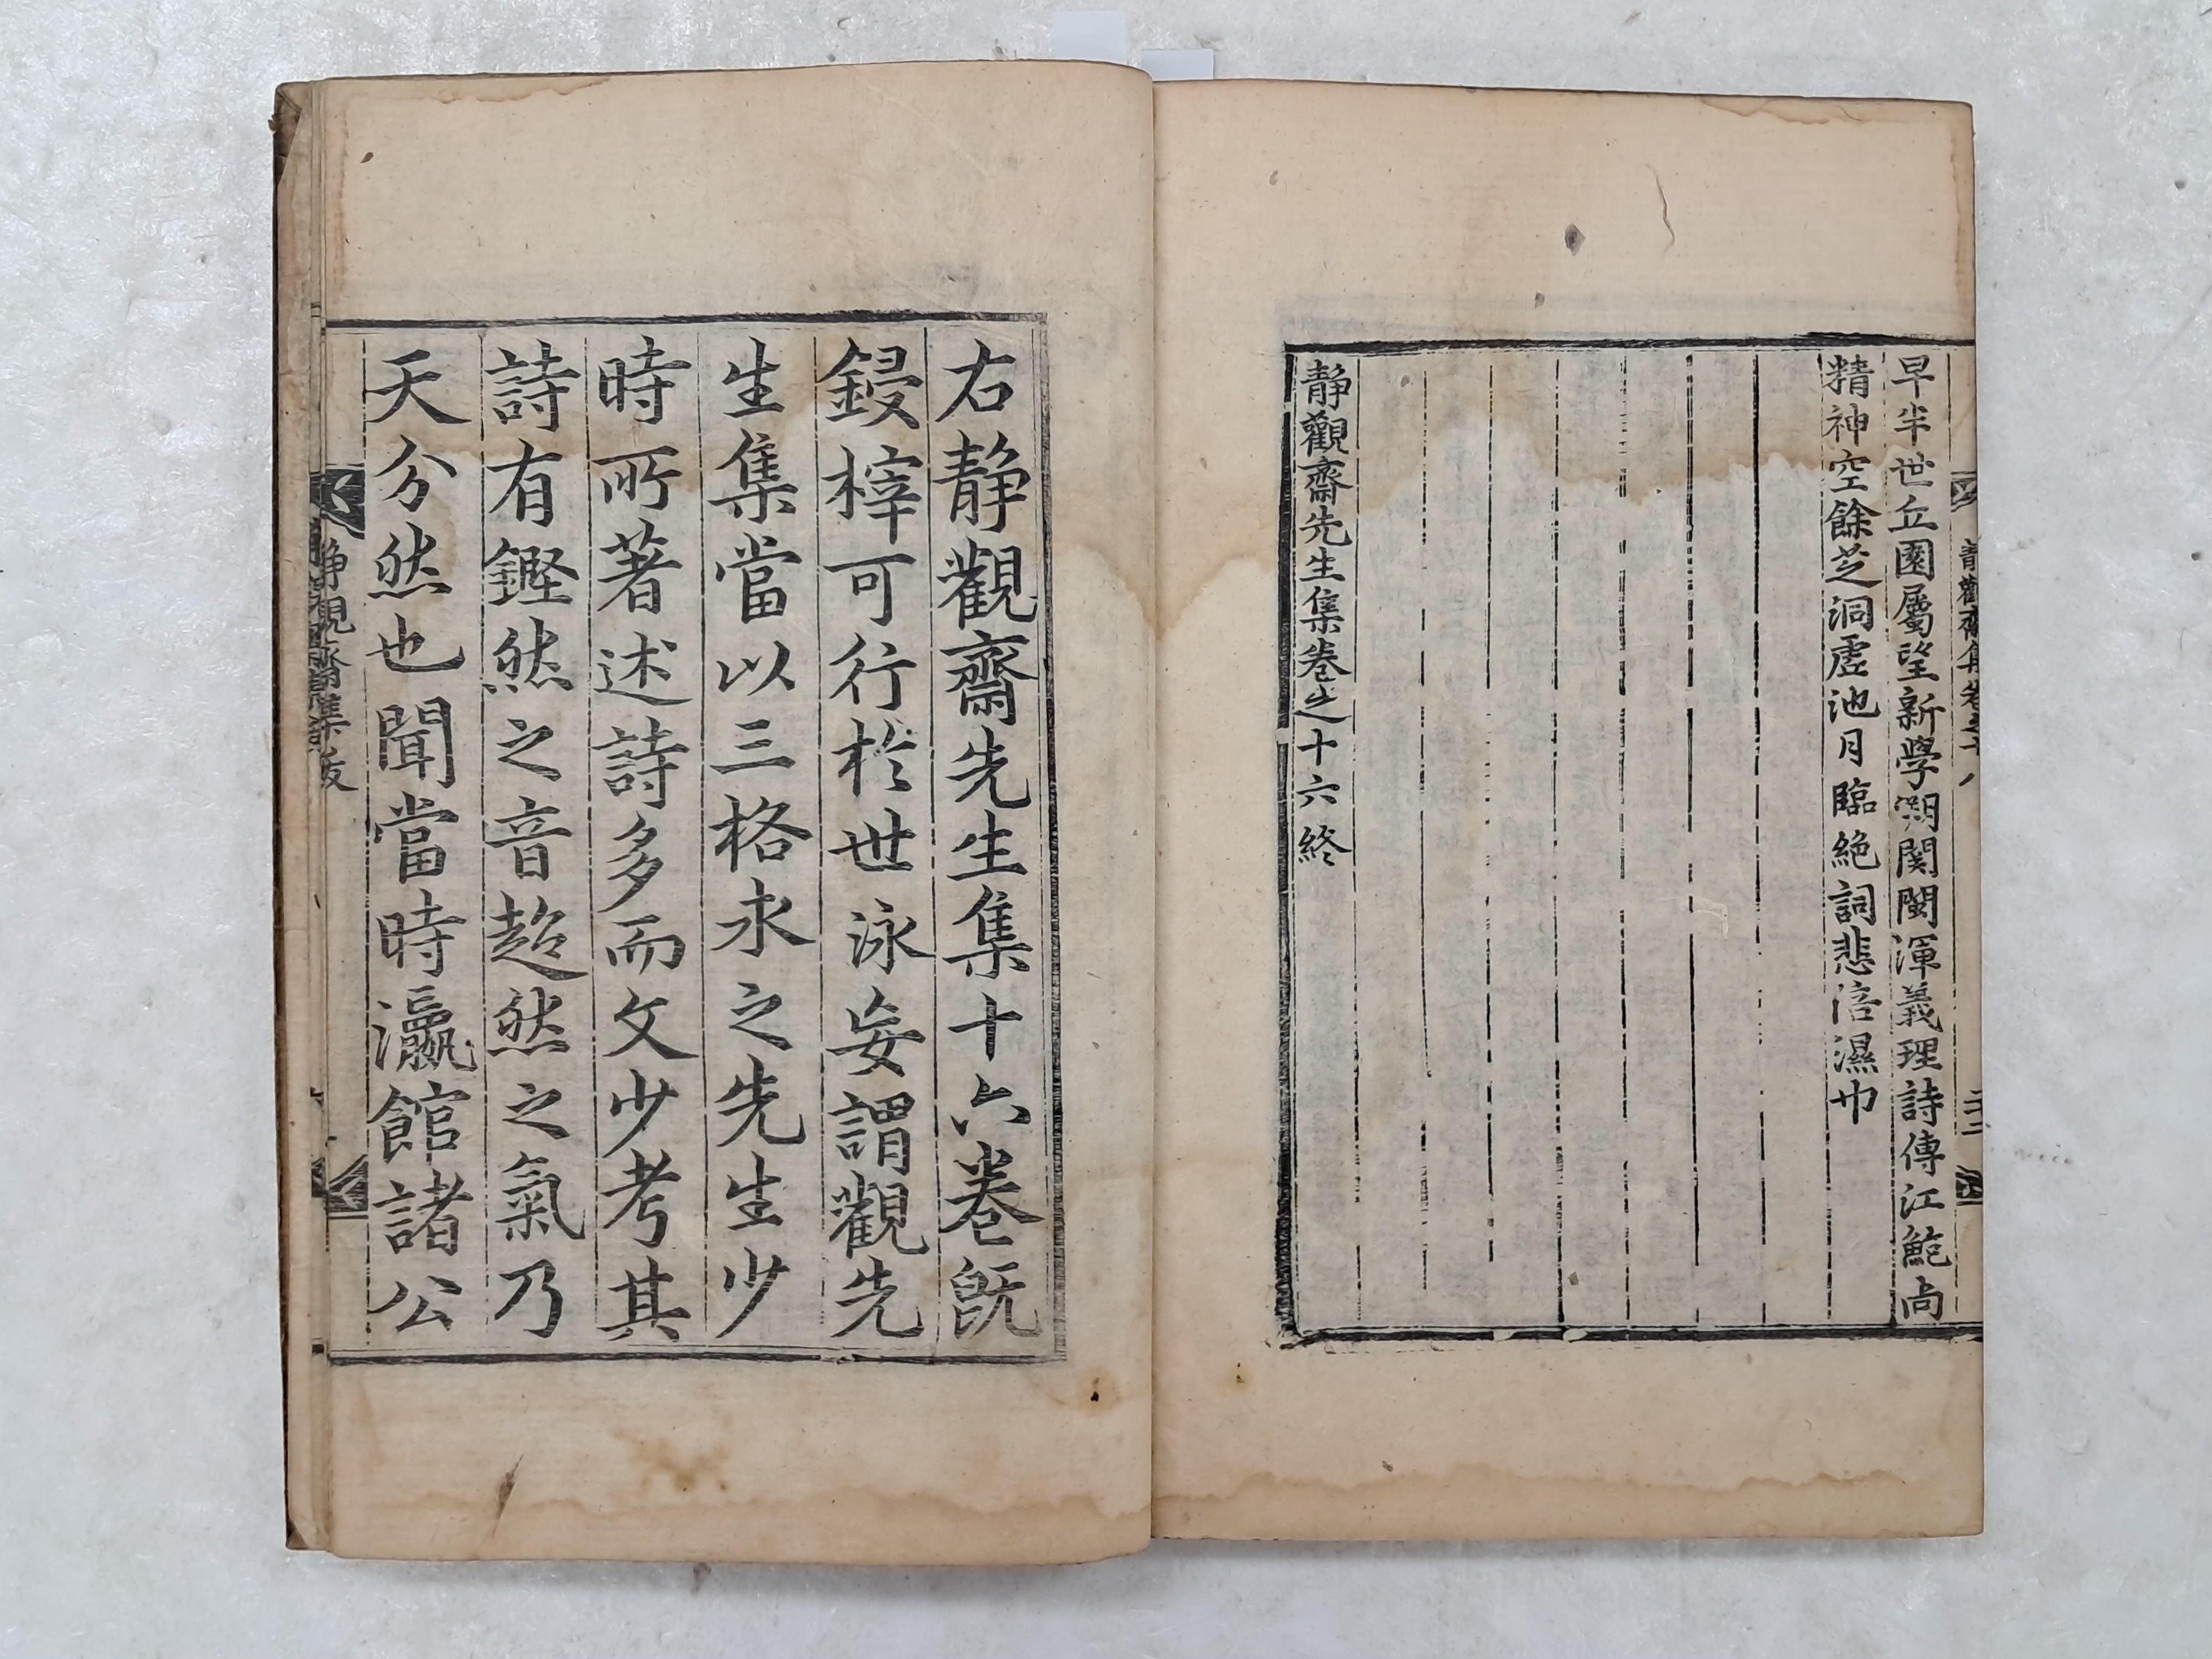 早半世丘園屬望新學溯関閩渾義理詩傳江鮑尚
精神空餘芝洞虛池月臨絶詞悲倍濕巾
靜觀齋先生集卷之十六終
右靜觀齋先生集十六卷旣
鋟梓可行於世泳妄謂觀先
生集當以三格求之先生少
時所著述詩多而文少考其
詩有鏗然之音趍然之氣乃
天分然也聞當時瀛館諸公
靜觀齋集跋